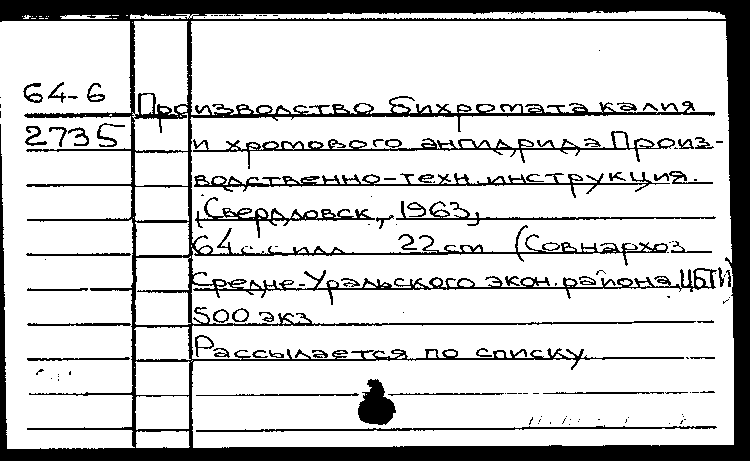 64-6
2735
Производство бихромата калия
и хромового ангидрида Произ-
водственно-техн. инструкция.
Свердловск, 1963,
64 с. с илл. 22 cm (Совнархоз
Средне-Уральского экон. района, ЦБТИ)
500 экз
Рассылается по списку.